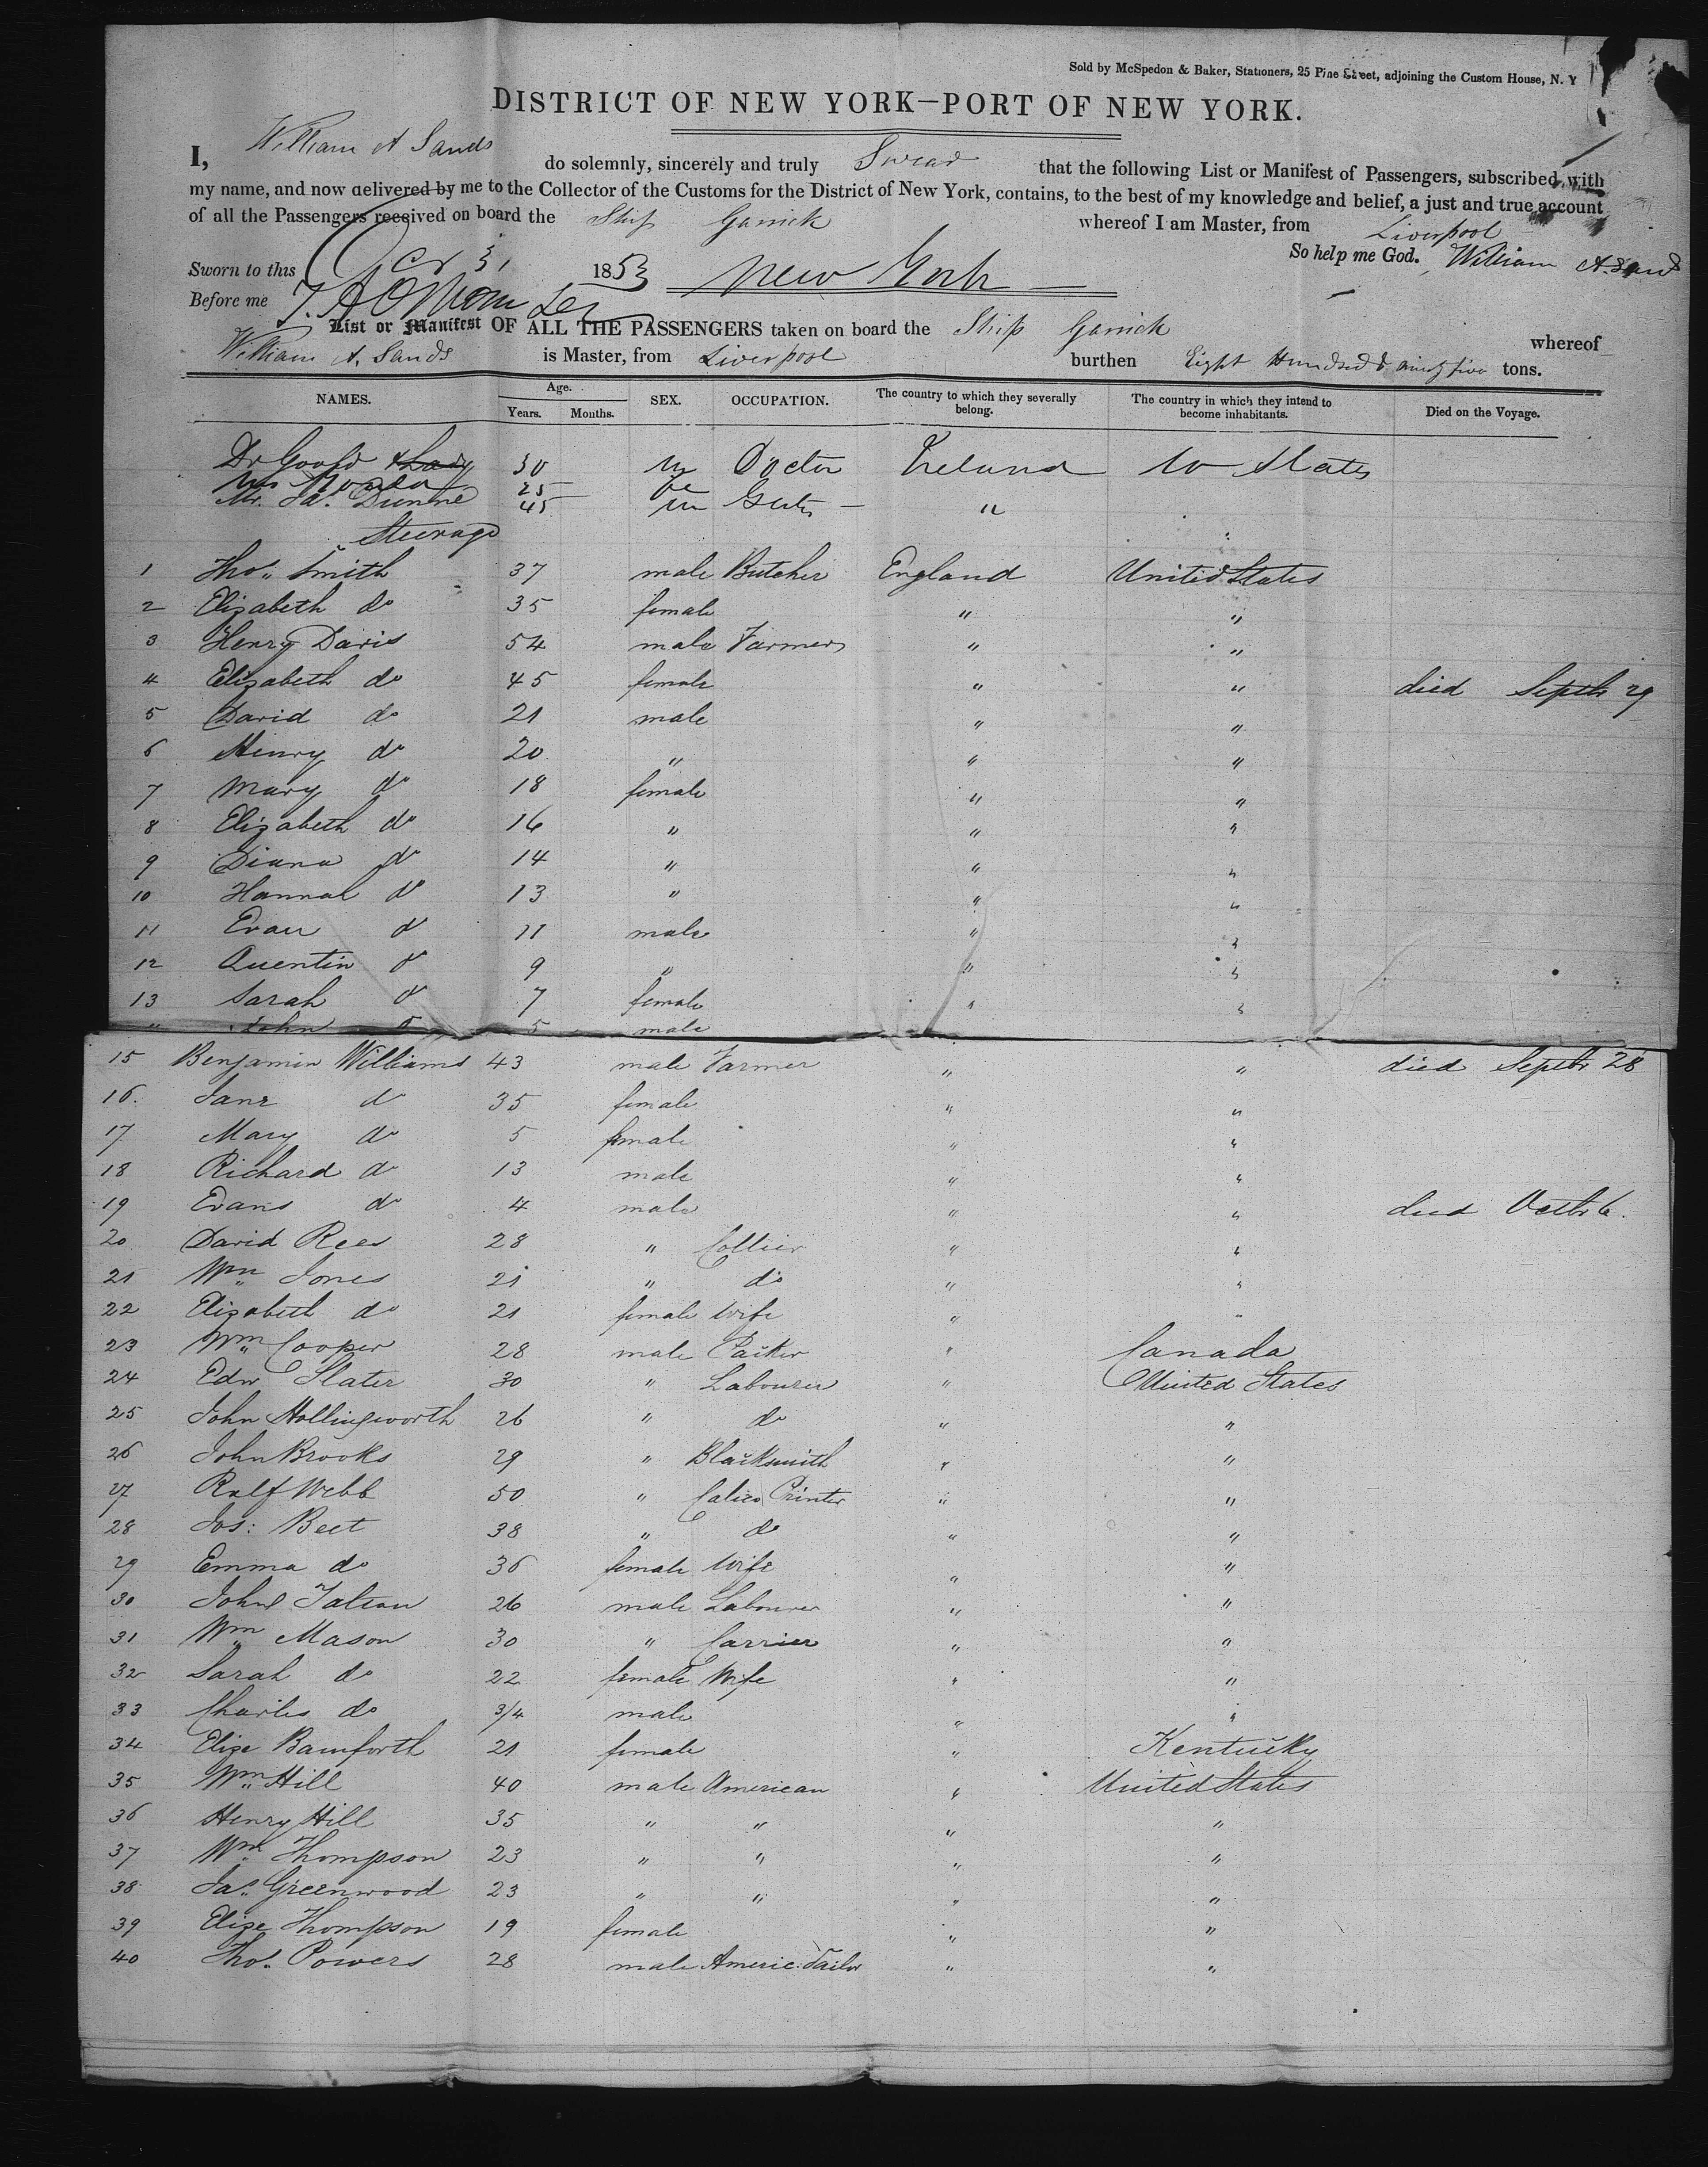 Sold by McSpedon & Baker, Stationers, 25 Pine Street, adjoining the Custom House, N. Y
DISTRICT OF NEW YORK—PORT OF NEW YORK.
I, William A Sands do solemnly, sincerely and truly Swear that the following List or Manifest of Passengers, subscribed with
my name, and now delivered by me to the Collector of the Customs for the District of New York, contains, to the best of my knowledge and belief, a just and true account
of all the Passengers received on board the Ship Garrick whereof I am Master, from Liverpool
So help me God. William A. Sands
Sworn to this Oct 31 1853 New York
Before me
List or Manifest OF ALL THE PASSENGERS taken on board the Ship Garrick whereof
William A. Sands is Master, from Liverpool burthen Eight Hundred & ninety five tons.
NAMES. Age. Years. Months. SEX. OCCUPATION. The country to which they severally belong. The country in which they intend to become inhabitants. Died on the Voyage.
Dr Goold & Lady 30 m Doctor Ireland U States
25 fe
Mr. Jas. Dunne 45 m Gent "
Steerage "
1 Thos. Smith 37 male Butcher England United States
2 Elizabeth do 35 female " "
3 Henry Davis 54 male Farmer " "
4 Elizabeth do 45 female " " died Septbr 29
5 David do 21 male " "
6 Henry do 20 " " "
7 Mary do 18 female " "
8 Elizabeth do 16 " " "
9 Diana do 14 " " "
10 Hannah do 13 " " "
11 Evan do 11 male " "
12 Quentin do 9 " " "
13 Sarah do 7 female " "
" John do 5 male
15 Benjamin Williams 43 male Farmer " " died Septbr 28
16. Jane do 35 female " "
17 Mary do 5 female " "
18 Richard do 13 male " "
19 Evans do 4 male " " died Octbr 6.
20 David Rees 28 " Collier " "
21 Wm Jones 21 " do " "
22 Elizabeth do 21 female Wife " "
23 Wm Cooper 28 male Packer " Canada
24 Edw Slater 30 " Labourer " United States
25 John Hollingworth 26 " do " "
26 John Brooks 29 " Blacksmith " "
27 Ralf Webb 50 " Calico Printer " "
28 Jos: Beet 38 " do " "
29 Emma do 36 female Wife " "
30 John Tatton 26 male Labourer " "
31 Wm Mason 30 " Carrier " "
32 Sarah do 22 female Wife " "
33 Charles do 3/4 male " "
34 Elize Bamforth 21 female " Kentucky
35 Wm Hill 40 male American " United States
36 Henry Hill 35 " " " "
37 Wm Thompson 23 " " " "
38 Jas. Greenwood 23 " " " "
39 Elize Thompson 19 female " "
40 Thos. Powers 28 male Americ: Tailor " "